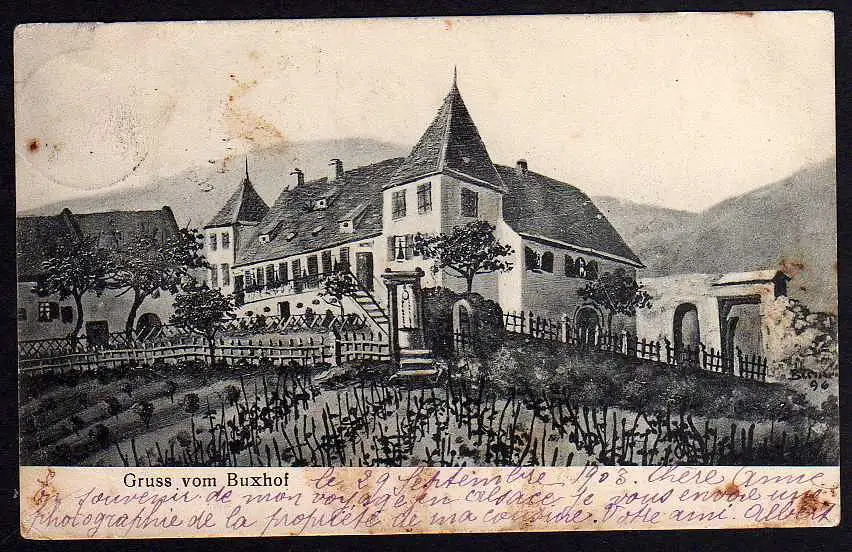 96
Gruss vom Buxhof
le 29 Septembre 1903. Chère Anne
En souvenir de mon voyage en Alsace je vous envoie une
photographie de la propriété de ma cousine. Votre ami. Albert